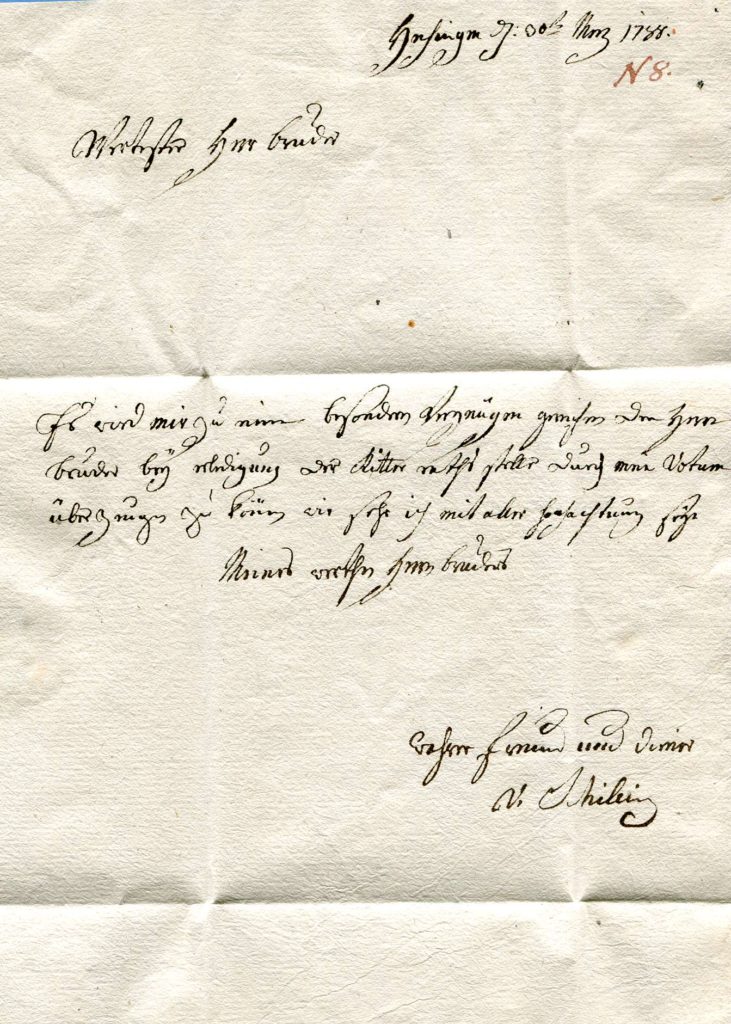 d: 30t Merz 1788.
N 8.
Wertester Herr bruder
Es wird mir zu einen besondern Vergnügen gereichen den Herrn
bruder bey erledigung der Ritter raths stelle durch mein Votum
überzeugen zu könen wie sehr ich mit aller hochachtung seye
Meines werthen Herrn bruders
wahrer freund und diener
v.